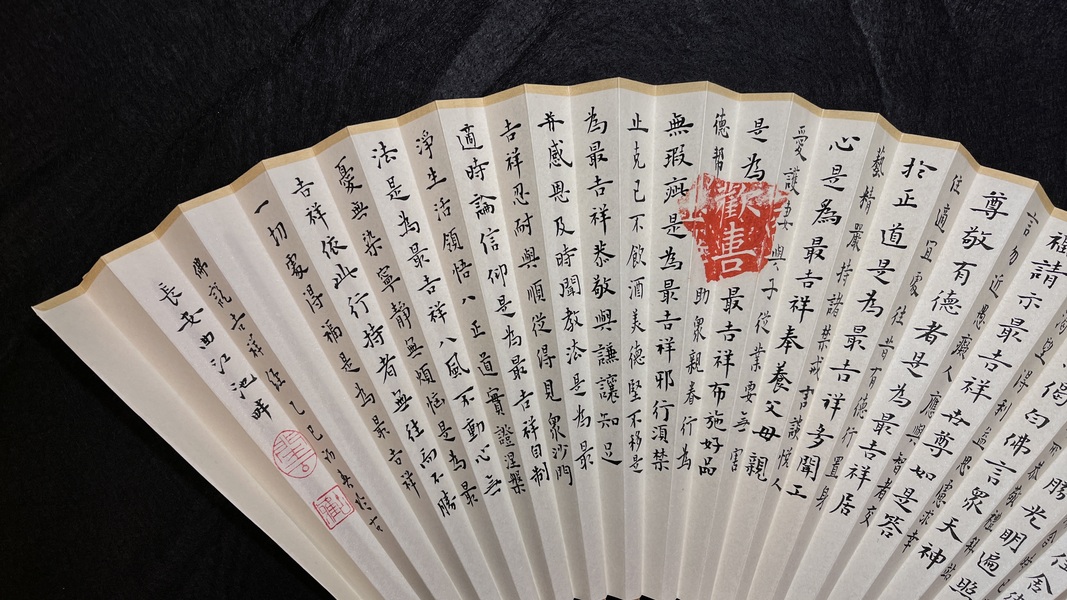 勝光明遍照
偈白佛言眾天神
望得利益思慮求幸
福請示最吉祥世尊如是答
言勿近愚癡人應與智者交
尊敬有德者是為最吉祥居
住適宜處往昔有德行置身
於正道是為最吉祥多聞工
藝精嚴持諸禁戒言談悅人
心是為最吉祥奉養父母親
愛護妻與子從業要無害
是為最吉祥布施好品
德幫助眾親眷行為
無瑕疵是為最吉祥邪行須禁
止克己不飲酒美德堅不移是
為最吉祥恭敬與謙讓知足
并感恩及時聞教法是為最
吉祥忍耐與順從得見眾沙門
適時論信仰是為最吉祥自制
淨生活領悟八正道實證涅槃
法是為最吉祥八風不動心無
憂無染寧靜無煩惱是為最
吉祥依此行持者無往而不勝
一切處得福是為最吉祥
佛說吉祥經乙巳初於古
長安曲江池畔
歡喜